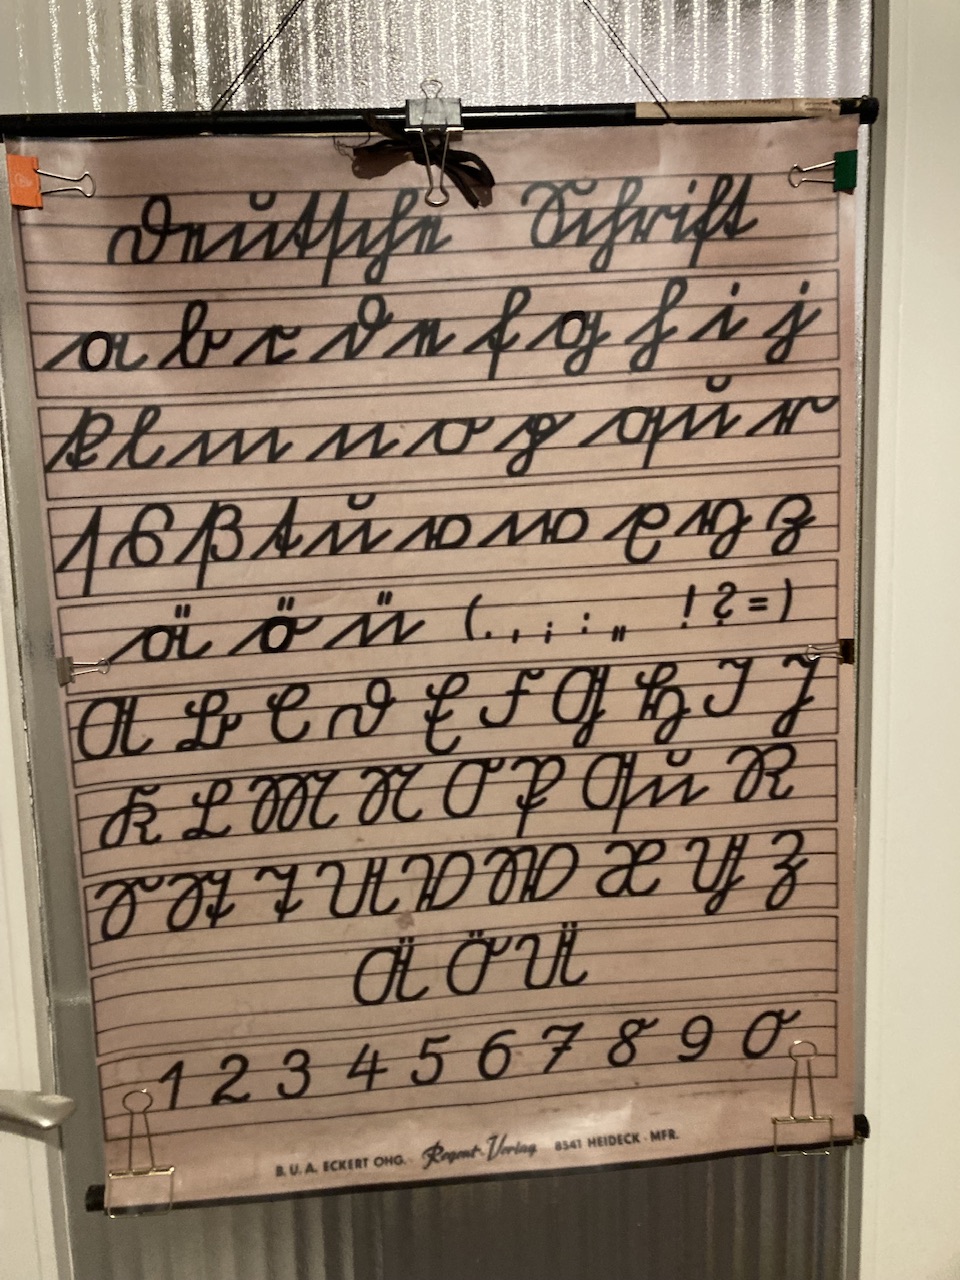 Deutsche Schrift
a b c d e f g h i j
k l m n o p qu r
ſ s ß t u v w x y z
ä ö ü ( . , ; : „ ! ? = )
A B C D E F G H I J
K L M N O P Qu R
S St T U V W X Y Z
Ä Ö Ü
1 2 3 4 5 6 7 8 9 0
B. U. A. ECKERT OHG. Regent-Verlag 8541 HEIDECK · MFR.